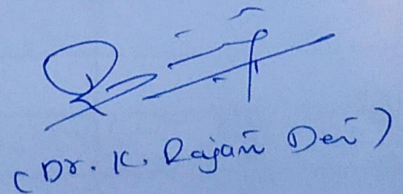 (Dr. K. Rajani Devi)